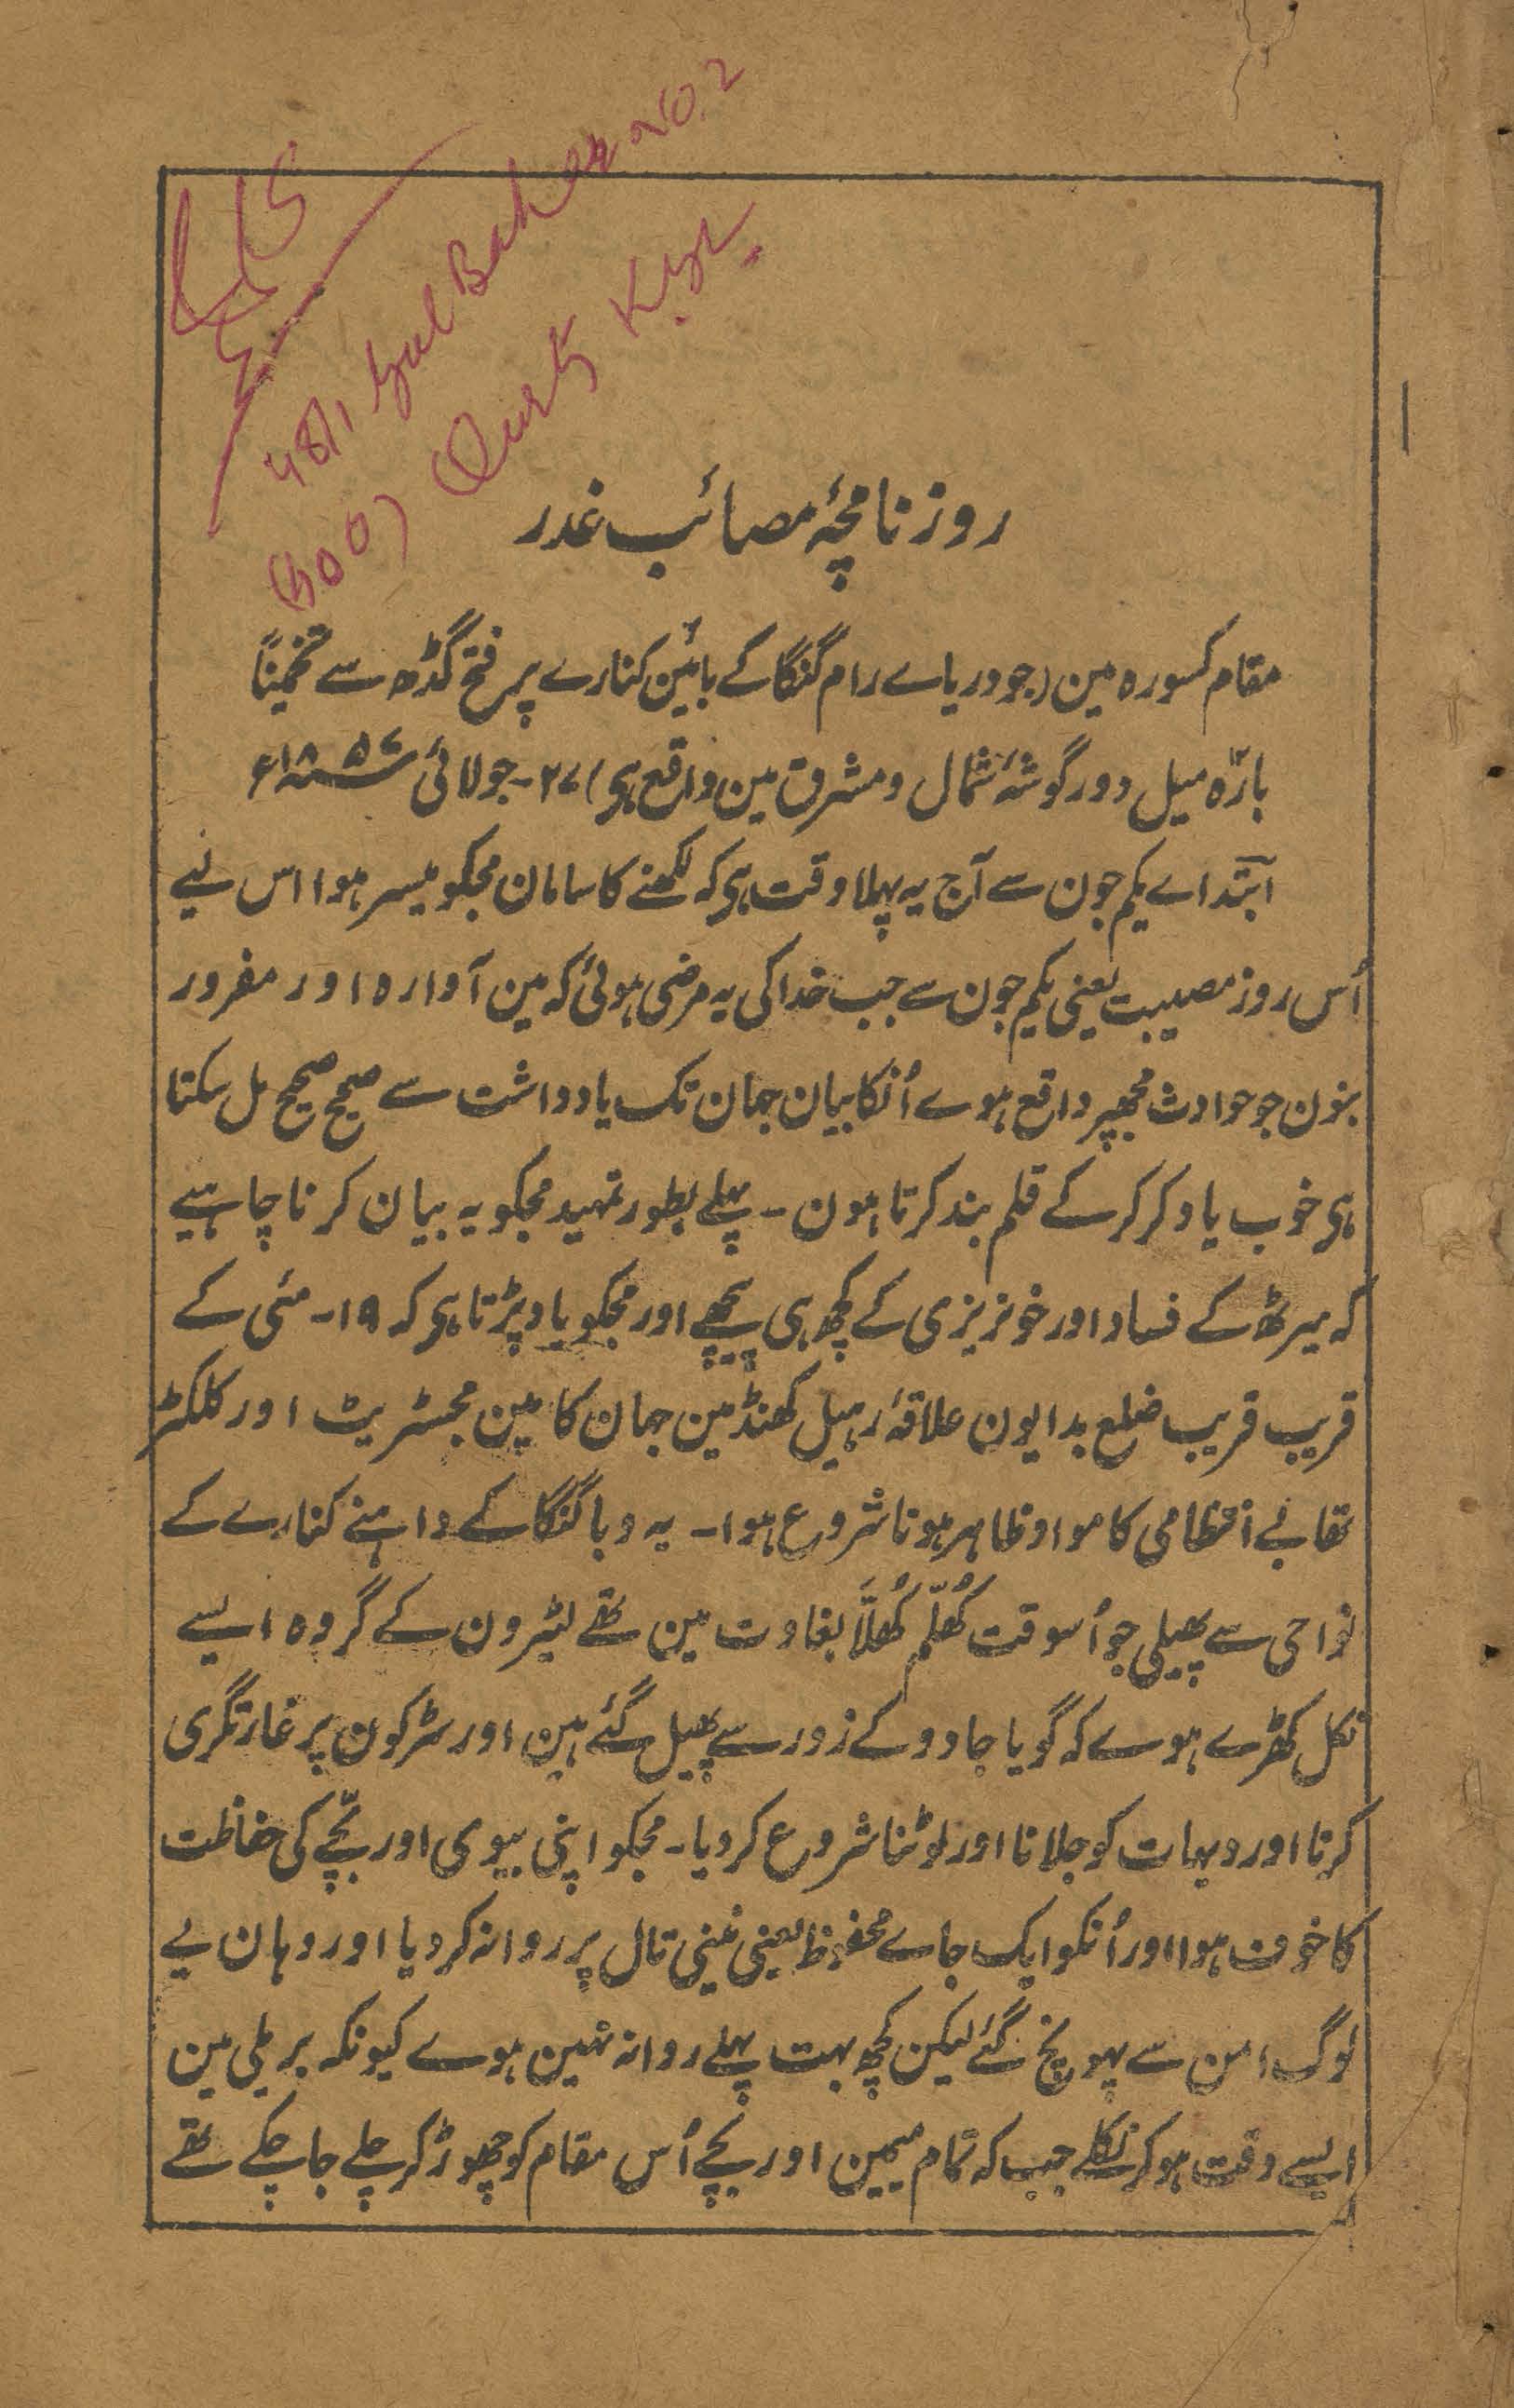 48/1 Gul Bahar No. 2
روزنامچۂ مصائب غدر
مقام کسورہ مین (جو دریاے رام گنگا کے بائین کنارے پر فتح گڈھ سے تخمیناً
بارہ میل دور گوشۂ شمال و مشرق مین واقع ہی) ۲۷- جولائی ۱۸۵۷ء
ابتداے یکم جون سے آج یہ پہلا وقت ہی کہ لکھنے کا سامان مجکو میسر ہوا اس لیے
اُس روز مصیبت یعنی یکم جون سے جب خدا کی یہ مرضی ہوئی کہ مین آوارہ اور مفرور
بنون جو حوادث مجھپر واقع ہوے اُنکا بیان جہان تک یادداشت سے صحیح صحیح مل سکتا
ہی خوب یاد کر کر کے قلم بند کرتا ہون - پہلے بطور تمہید مجکو یہ بیان کرنا چاہیے
کہ میرٹھ کے فساد اور خونریزی کے کچھ ہی پیچھے اور مجکو یاد پڑتا ہی کہ ۱۹- مئی کے
قریب قریب ضلع بدایون علاقۂ رہیل کھنڈ مین جہان کا مین مجسٹریٹ اور کلکٹر
تھا بے انتظامی کا مواد ظاہر ہونا شروع ہوا - یہ وبا گنگا کے داہنے کنارے کے
نواحی سے پھیلی جو اُسوقت کُھلّم کُھلّا بغاوت مین تھے لٹیرون کے گروہ ایسے
نکل کھڑے ہوے کہ گویا جادو کے زور سے پھیل گئے ہین اور سڑکون پر غارتگری
کرنا اور دیہات کو جلانا اور لوٹنا شروع کر دیا - مجکو اپنی بیوی اور بچّے کی حفاظت
کا خوف ہوا اور اُنکو ایک جاے محفوظ یعنی نینی تال پر روانہ کر دیا اور وہان یے
لوگ امن سے پہونچ گئے لیکن کچھ بہت پہلے روانہ نہین ہوے کیونکہ بریلی مین
ایسے وقت ہو کر نکلے جب کہ تمام میمین اور بچے اُس مقام کو چھوڑ کر چلے جا چکے تھے